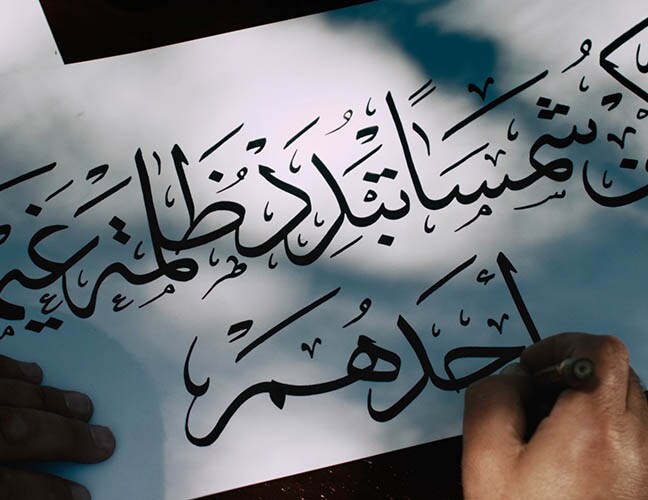 كن شمسًا تبدِّد ظُلمة غيم
أحدهم